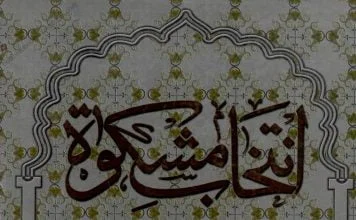 انتخاب مشكوة